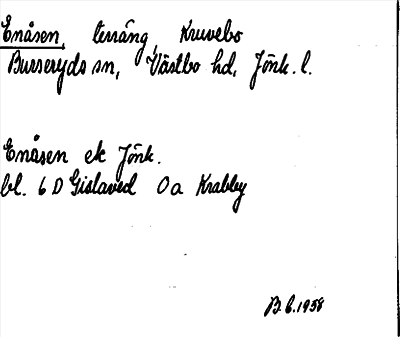 Enåsen, terräng, Kruvebo
Burseryds sn, Västbo hd, Jönk. l.
Enåsen ek Jönk.
bl. 6 D Gislaved 0a Krabbey
B.b.1958